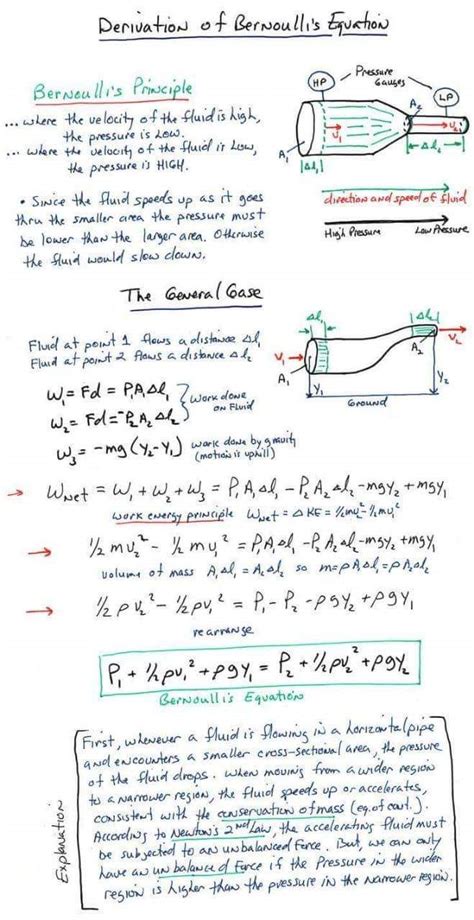 Derivation of Bernoulli's Equation
Bernoulli's Principle
... where the velocity of the fluid is high,
the pressure is low.
... where the velocity of the fluid is low,
the pressure is HIGH.
• Since the fluid speeds up as it goes
thru the smaller area the pressure must
be lower than the larger area. Otherwise
the fluid would slow down.
HP
Pressure
Gauges
LP
A₂
V₁
V₂
A₁
Δl₁
Δl₂
direction and speed of fluid
High Pressure Low Pressure
The General Case
Fluid at point 1 flows a distance Δl₁
Fluid at point 2 flows a distance Δl₂
W₁ = Fd = P₁A₁Δl₁
W₂ = Fd = -P₂A₂Δl₂
work done
on fluid
W₃ = -mg(Y₂-Y₁) work done by gravity
(motion is uphill)
Δl₁
Δl₂
V₁
V₂
A₁
A₂
Y₁
Y₂
Ground
→ Wnet = W₁ + W₂ + W₃ = P₁A₁Δl₁ - P₂A₂Δl₂ - mgy₂ + mgy₁
work energy principle Wnet = ΔKE = ½mv₂² - ½mv₁²
→ ½mv₂² - ½mv₁² = P₁A₁Δl₁ - P₂A₂Δl₂ - mgy₂ + mgy₁
volume of mass A₁Δl₁ = A₂Δl₂ so m = ρAΔl₁ = ρA₂Δl₂
→ ½ρv₂² - ½ρv₁² = P₁ - P₂ - ρgy₂ + ρgy₁
rearrange
P₁ + ½ρv₁² + ρgy₁ = P₂ + ½ρv₂² + ρgy₂
Bernoulli's Equation
Explanation
First, whenever a fluid is flowing in a horizontal pipe
and encounters a smaller cross-sectional area, the pressure
of the fluid drops. When moving from a wider region
to a narrower region, the fluid speeds up or accelerates,
consistent with the conservation of mass (eq. of cont.).
According to Newton's 2nd Law, the accelerating fluid must
be subjected to an unbalanced force. But, we can only
have an unbalanced force if the pressure in the wider
region is higher than the pressure in the narrower region.